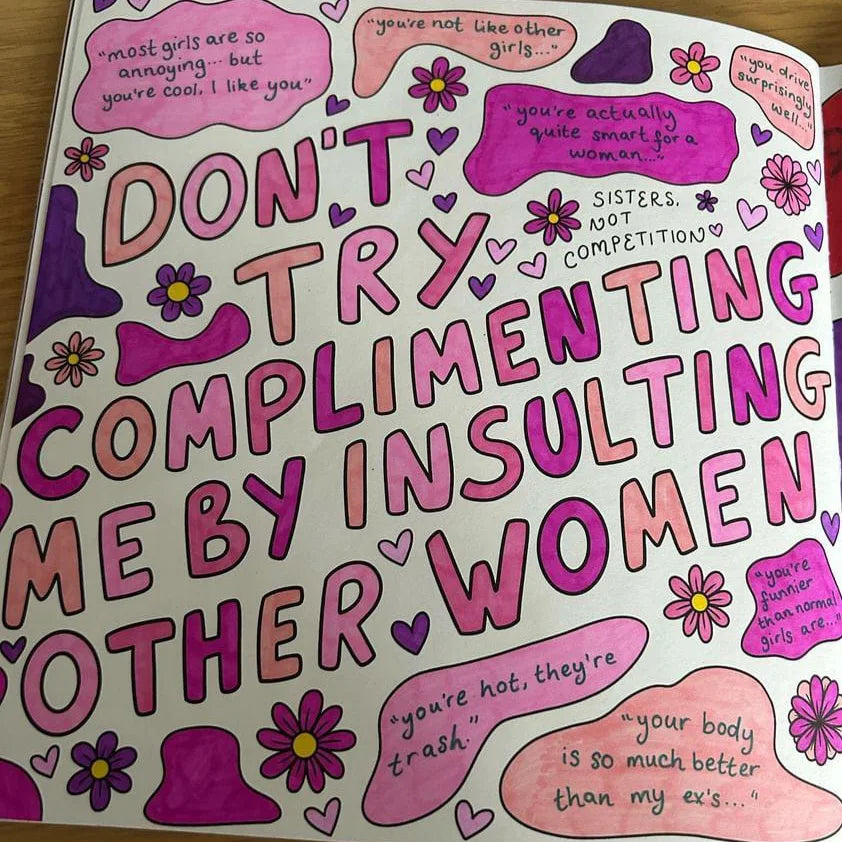 "most girls are so
annoying... but
you're cool, I like you"
"you're not like other
girls..."
"you drive
surprisingly
well..."
"you're actually
quite smart for a
woman..."
SISTERS,
NOT
COMPETITION
DON'T
TRY
COMPLIMENTING
ME BY INSULTING
OTHER WOMEN
"you're
funnier
than normal
girls are..."
"you're hot, they're
trash."
"your body
is so much better
than my ex's..."